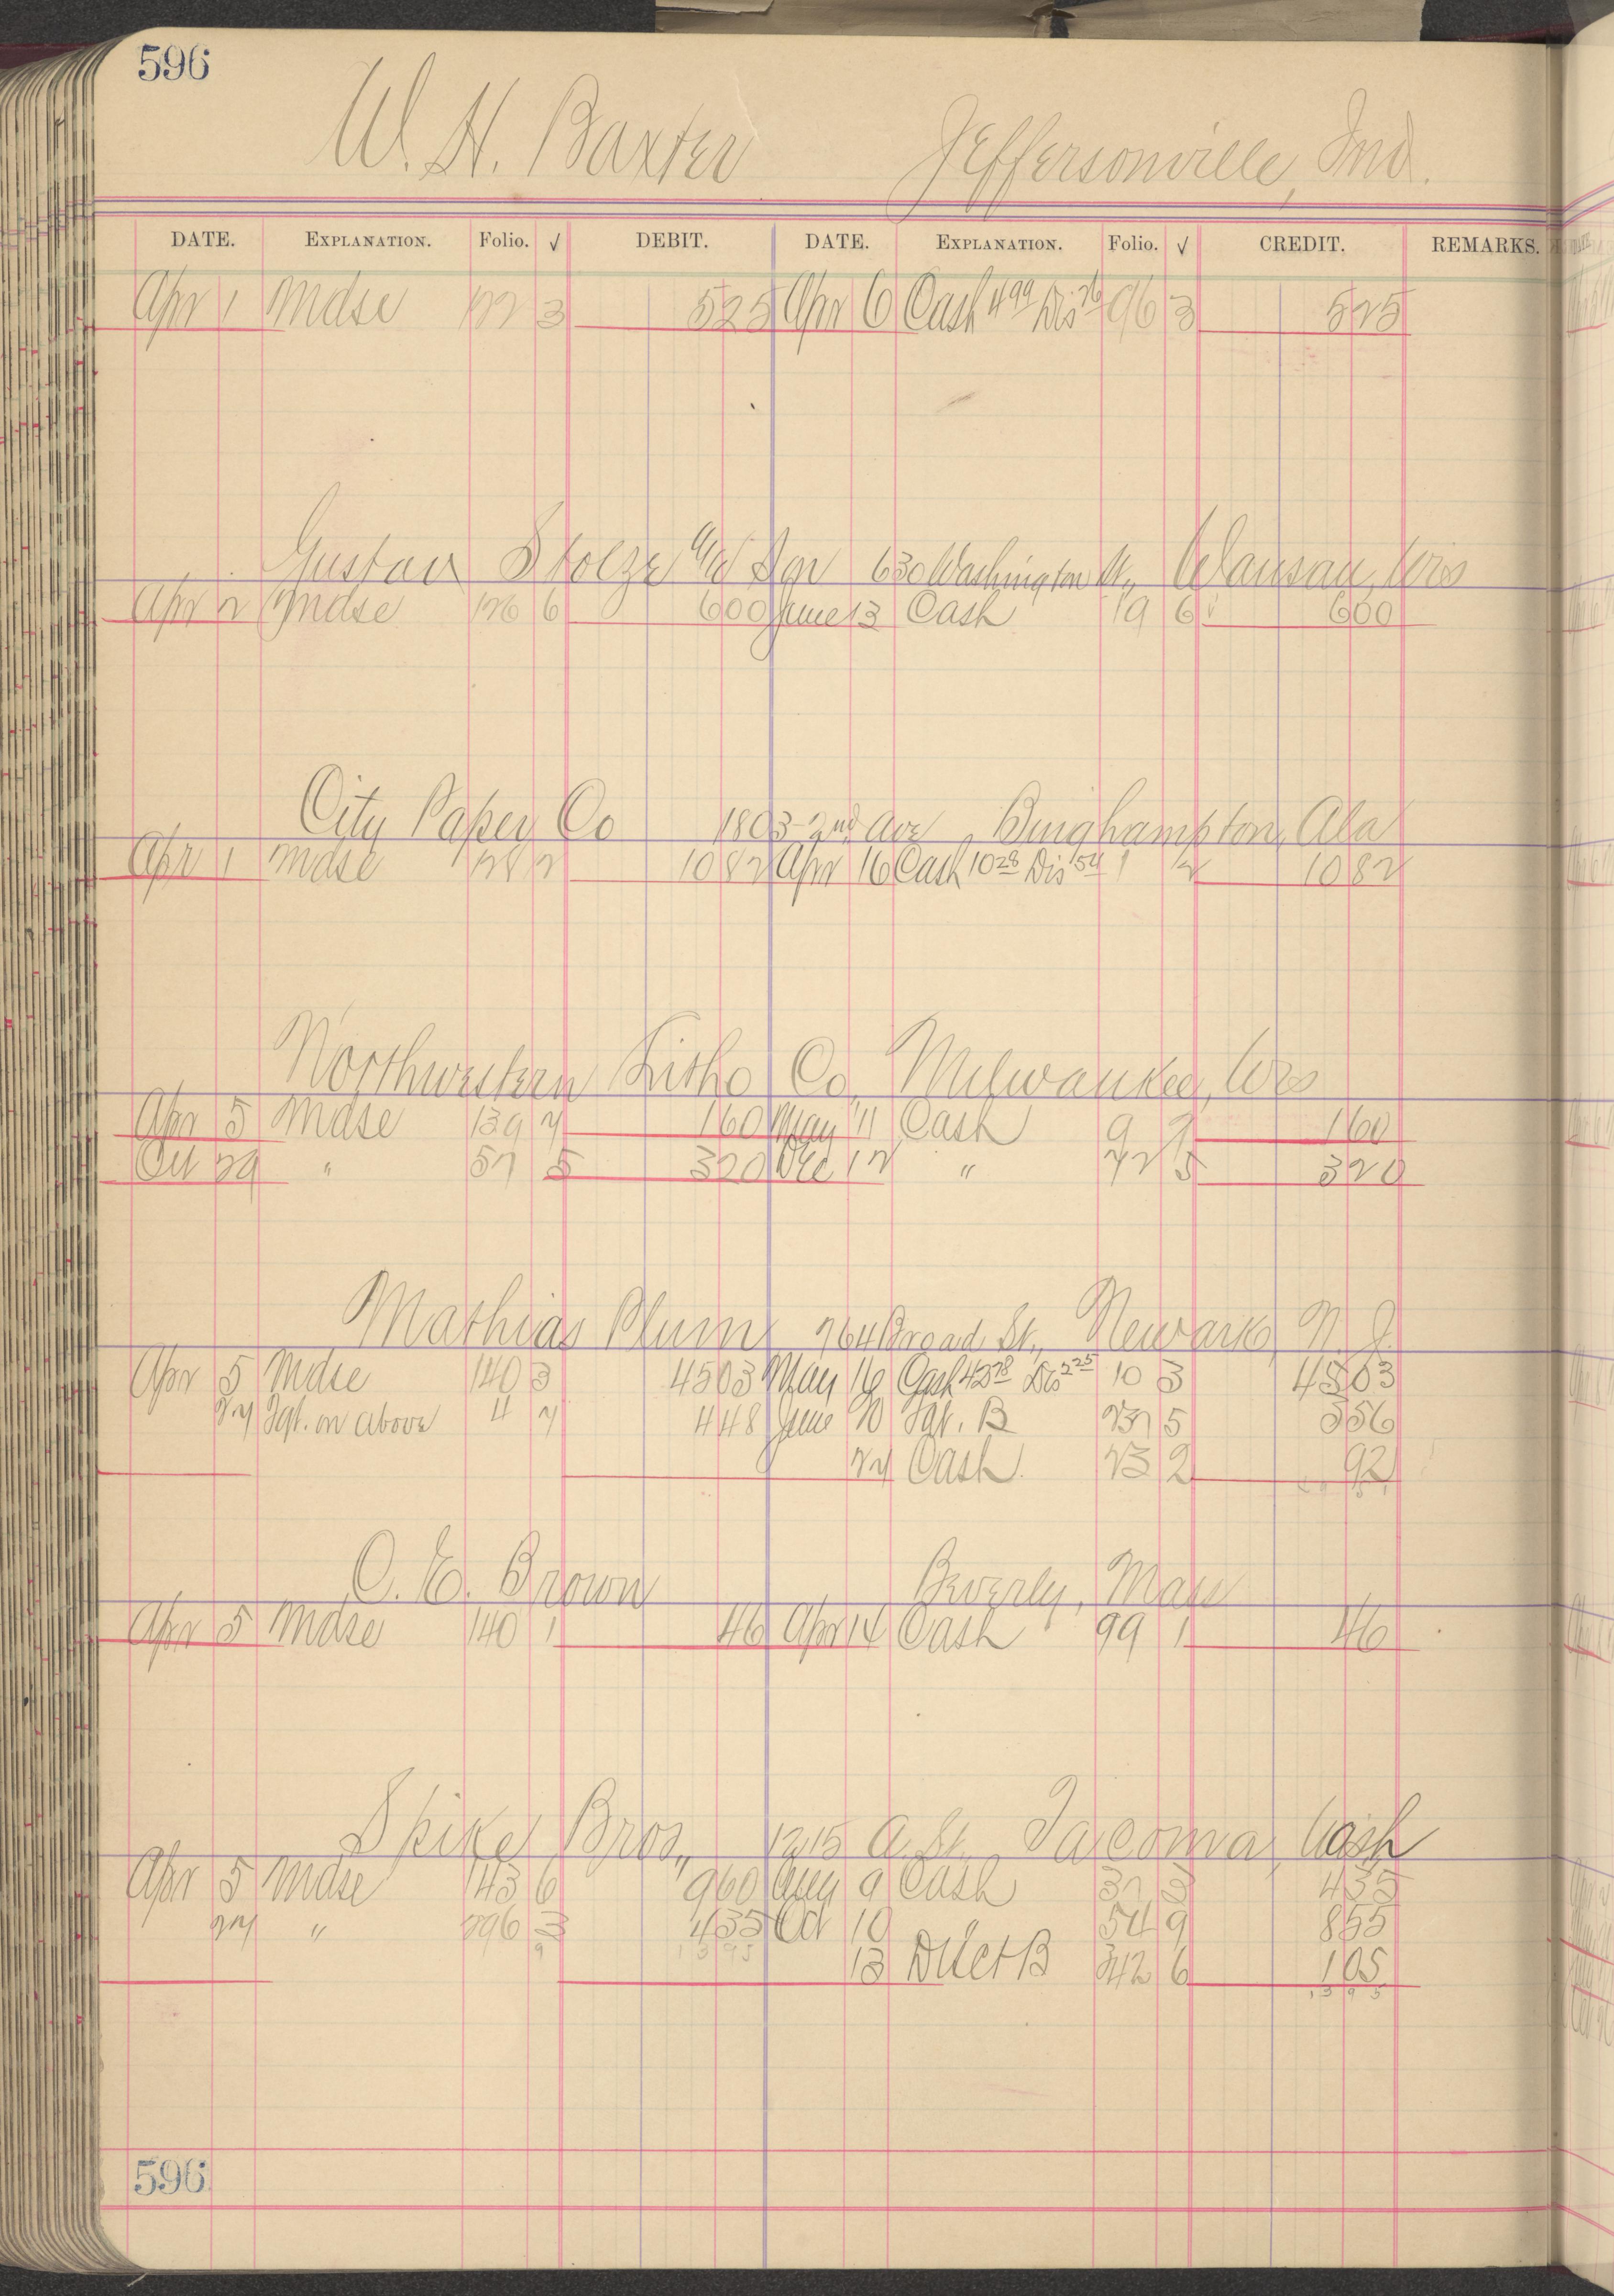 596
W. H. Baxter Jeffersonville, Ind.
DATE. EXPLANATION. Folio. √ DEBIT. DATE. EXPLANATION. Folio. √ CREDIT. REMARKS.
Apr 1 Mdse 122 3 525 Apr 6 Cash 4 99 Dis 26 96 3 525
Gustav Stolze 630 Washington St., Wausau, Wis
Apr 2 Mdse 126 6 600 June 13 Cash 19 6 600
City Paper Co 1803-2nd Ave Binghampton, Ala
Apr 1 Mdse 128 2 1082 Apr 16 Cash 10 28 Dis 54 1 2 1082
Northwestern Litho Co, Milwaukee, Wis
Apr 5 Mdse 139 7 160 May 11 Cash 9 9 160
Oct 29 " 57 5 320 Dec 12 " 72 5 320
Mathias Plum 764 Broad St., Newark, N. J.
Apr 5 Mdse 140 3 4503 May 16 Cash 42 78 Dis 2 25 10 3 4503
27 Fgt. on above 4 7 448 June 20 Fgt. B 237 5 356
27 Cash. 23 2 92
C. E. Brown Beverly, Mass
Apr 5 Mdse 140 1 46 Apr 14 Cash 99 1 46
Spike Bros., 1215 A. St. Tacoma, Wash
Apr 5 Mdse 143 6 960 Aug 9 Cash 37 3 435
27 " 296 3 435 Oct 10 " 54 9 855
9 1395 13 B 342 6 105
1395
596